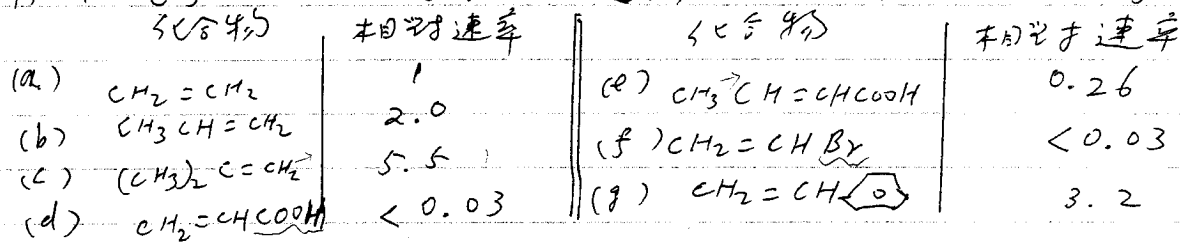 化合物 相对速率 化合物 相对速率
(a) CH2=CH2 1 (e) CH3CH=CHCOOH 0.26
(b) CH3CH=CH2 2.0 (f) CH2=CHBr <0.03
(c) (CH3)2C=CH2 5.5 (g) CH2=CH 3.2
(d) CH2=CHCOOH <0.03